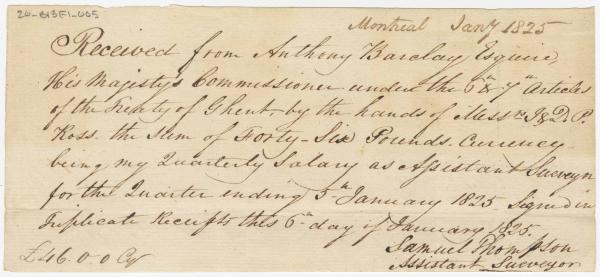 20-B13F1-005
Montreal Jany 1825
Received from Anthony Barclay Esquire,
His Majesty's Commissioner under the 6th & 7th Articles
of the Treaty of Ghent, by the hands of Messrs J & D. P.
Ross. the Sum of Forty-Six Pounds. Currency
being my Quarterly Salary as Assistant Surveyor
for the Quarter ending 5th January 1825. Signed in
Triplicate Receipts this 6th day of January 1825.
Samuel Thompson
Assistant Surveyor
£46.0.0 Cy